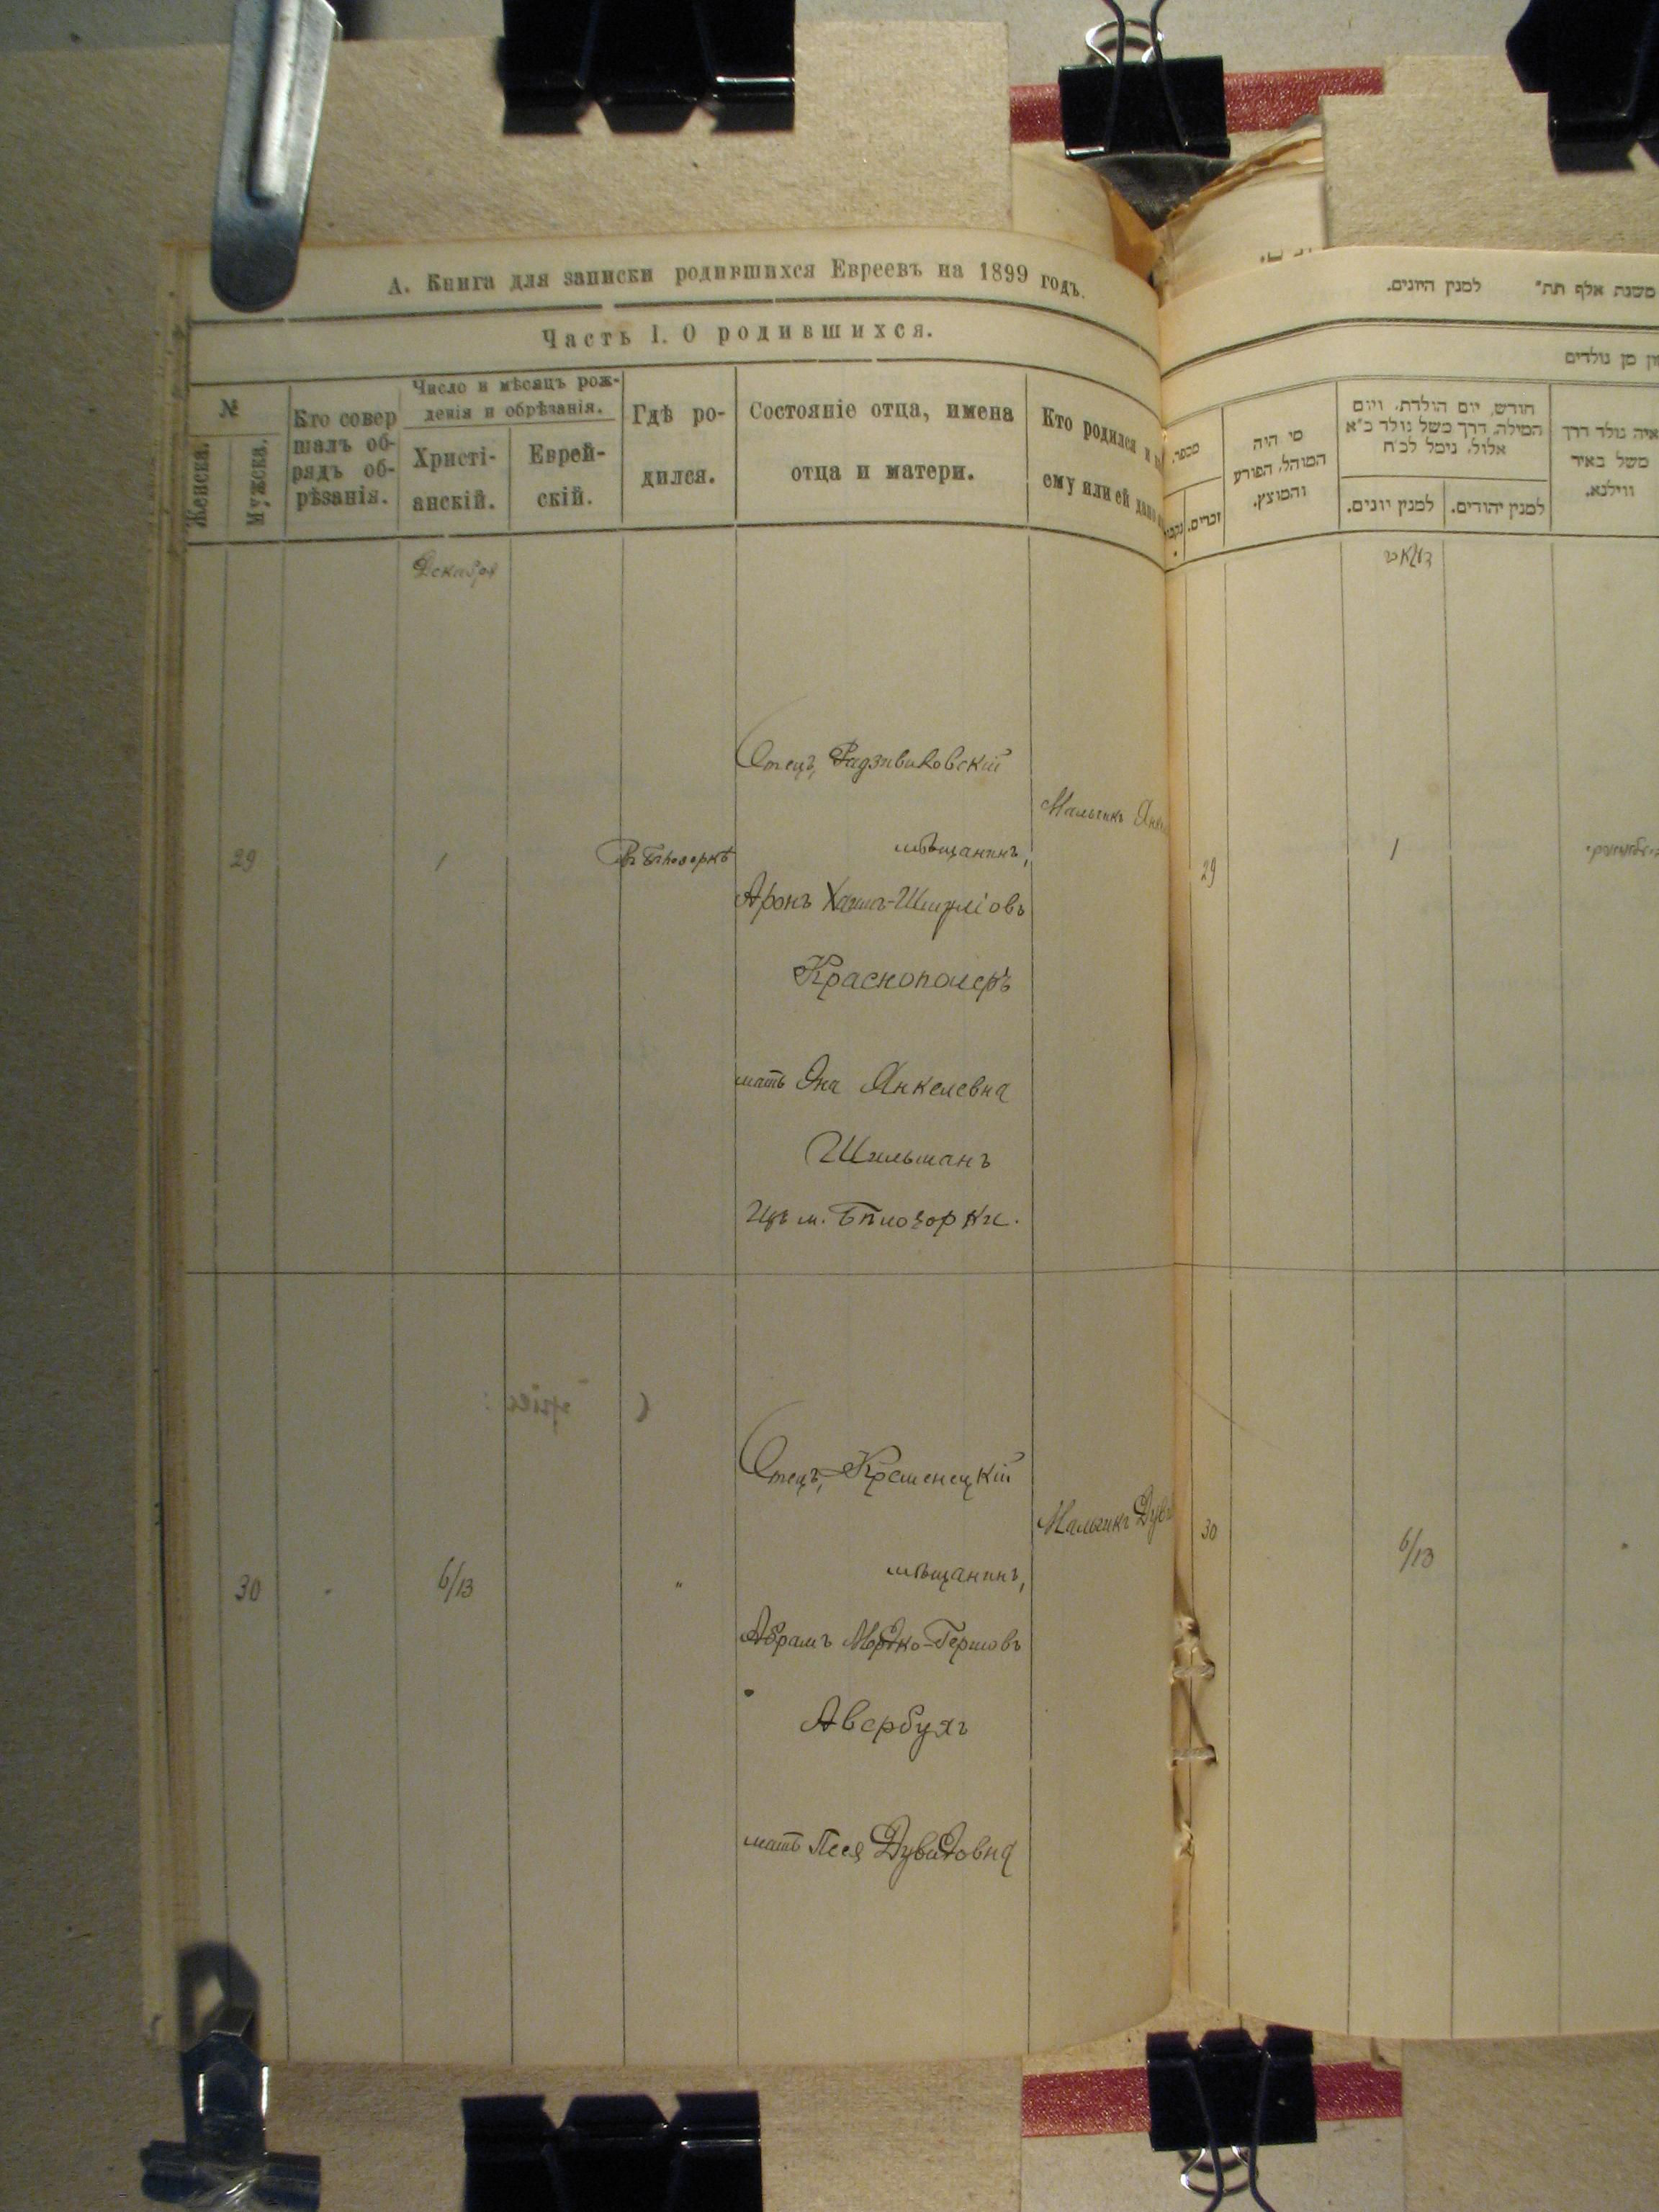 А. Книга для записки родившихся Евреевъ на 1899 годъ.
Часть I. О родившихся.
№
Женска.
Мужска.
Кто совер
шалъ об-
рядъ об-
рѣзанія.
Число и мѣсяцъ рож-
денія и обрѣзанія.
Христі-
анскій.
Еврей-
скій.
Гдѣ ро-
дился.
Состояніе отца, имена
отца и матери.
Кто родился и
ему или ей дано
Декабря
29
1
Въ Бѣлозоркѣ
Отецъ, Радзивиловскій
мѣщанинъ,
Аронъ Хаимъ-Шмулiовъ
Краснополеръ
мать Эна Янкелевна
Шильманъ
Изъ м. Бѣлозорки.
Мальчикъ
30
"
6/13
"
Отецъ, Кременецкій
мѣщанинъ,
Абрамъ Мордко-Гершовъ
Авербухъ
мать Песя Дувидовна
Мальчикъ
משנת אלף תת״ למנין היונים.
מן נולדים
מספר.
זכרים.
מי היה
המוהל, הפורע
והמוצץ.
חודש, יום הולדת, ויום
המילה, דרך משל נולד כ״א
אלול, נימל לכ״ח
למנין יונים.
למנין יהודים.
איה נולד דרך
משל באיד
ווילנא.
29
1
30
6/13
"